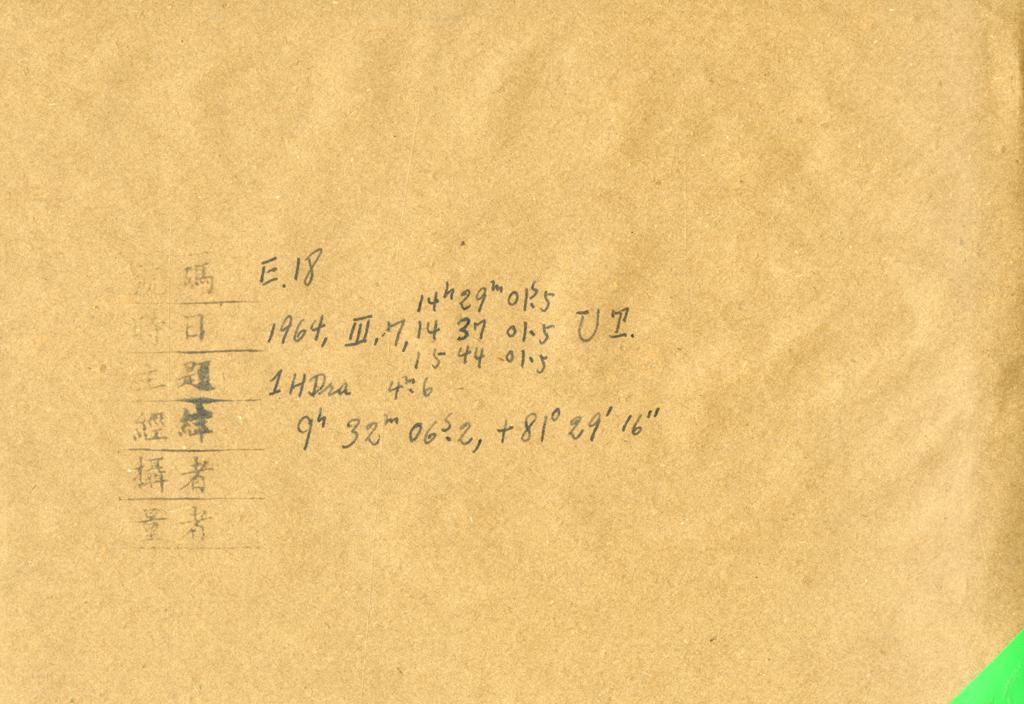 號碼 E.18
14ʰ 29ᵐ 01ˢ.5
時日 1964, III, 7, 14 37 01.5 UT.
15 44 01.5
主題 1HDra 4ᵐ.6
經緯 9ʰ 32ᵐ 06ˢ.2, +81° 29′ 16″
攝者
量者